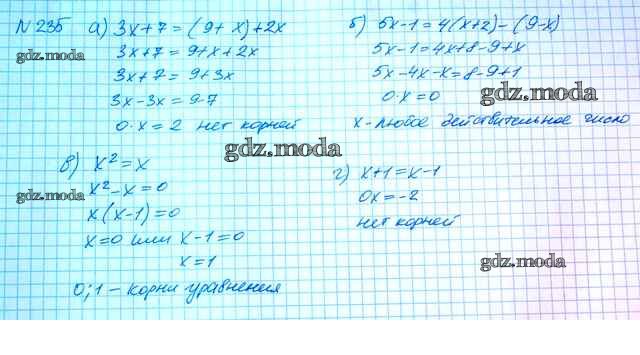 N 235 а) 3x+7 = (9+x)+2x
3x+7 = 9+x+2x
3x+7 = 9+3x
3x-3x = 9-7
0·x = 2 нет корней
б) 5x-1=4(x+2)-(9-x)
5x-1=4x+8-9+x
5x-4x-x=8-9+1
0·x=0
x-любое действительное число
в) x²=x
x²-x=0
x(x-1)=0
x=0 или x-1=0
x=1
0;1 – корни уравнения
г) x+1=x-1
0x=-2
нет корней
gdz.moda
gdz.moda
gdz.moda
gdz.moda
gdz.moda